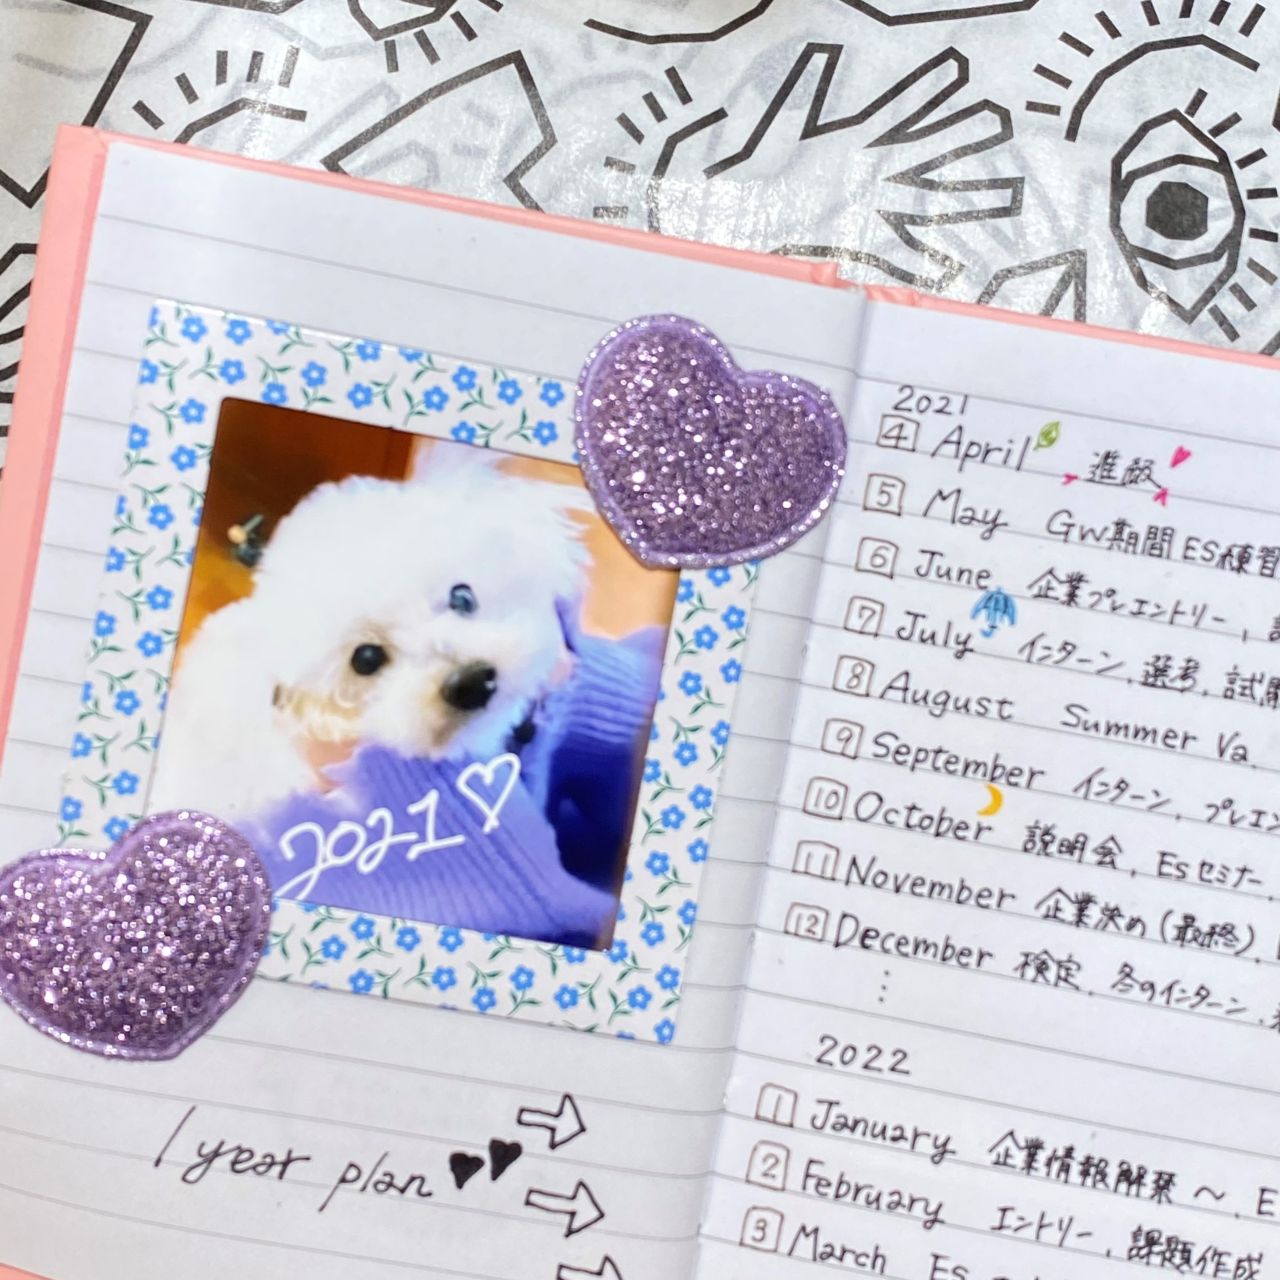 2021♡
1 year plan
2021
4 April 進級
5 May GW期間ES練習
6 June 企業プレエントリー,
7 July インターン,選考,試
8 August Summer Va.
9 September インターン,プレエン
10 October 説明会,Esセミナー
11 November 企業決め(最終),
12 December 検定,冬のインターン,
2022
1 January 企業情報解禁〜,E
2 February エントリー,課題作成
3 March Es